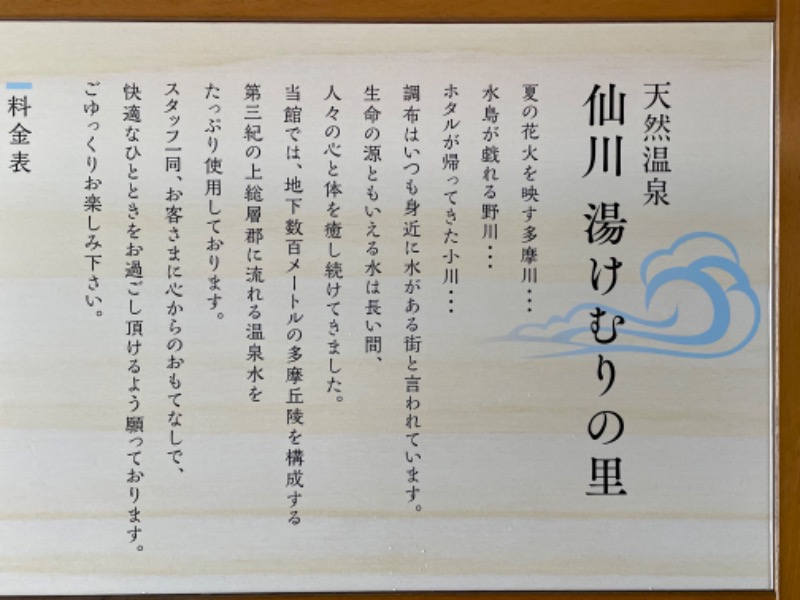 天然温泉
仙川 湯けむりの里
夏の花火を映す多摩川・・・
水鳥が戯れる野川・・・
ホタルが帰ってきた小川・・・
調布はいつも身近に水がある街と言われています。
生命の源ともいえる水は長い間、
人々の心と体を癒し続けてきました。
当館では、地下数百メートルの多摩丘陵を構成する
第三紀の上総層郡に流れる温泉水を
たっぷり使用しております。
スタッフ一同、お客さまに心からのおもてなしで、
快適なひとときをお過ごし頂けるよう願っております。
ごゆっくりお楽しみ下さい。
料金表